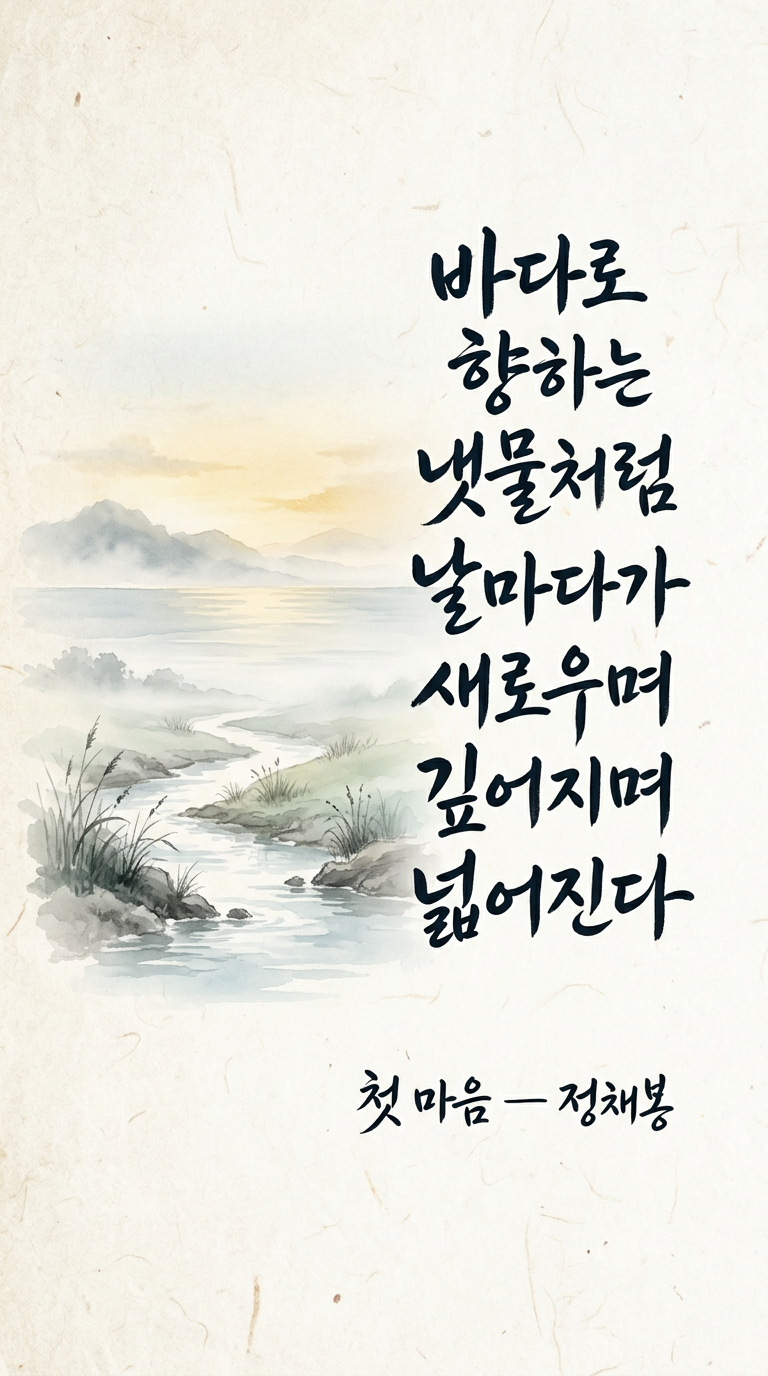 바다로
향하는
냇물처럼
날마다가
새로우며
깊어지며
넓어진다
첫 마음 — 정채봉